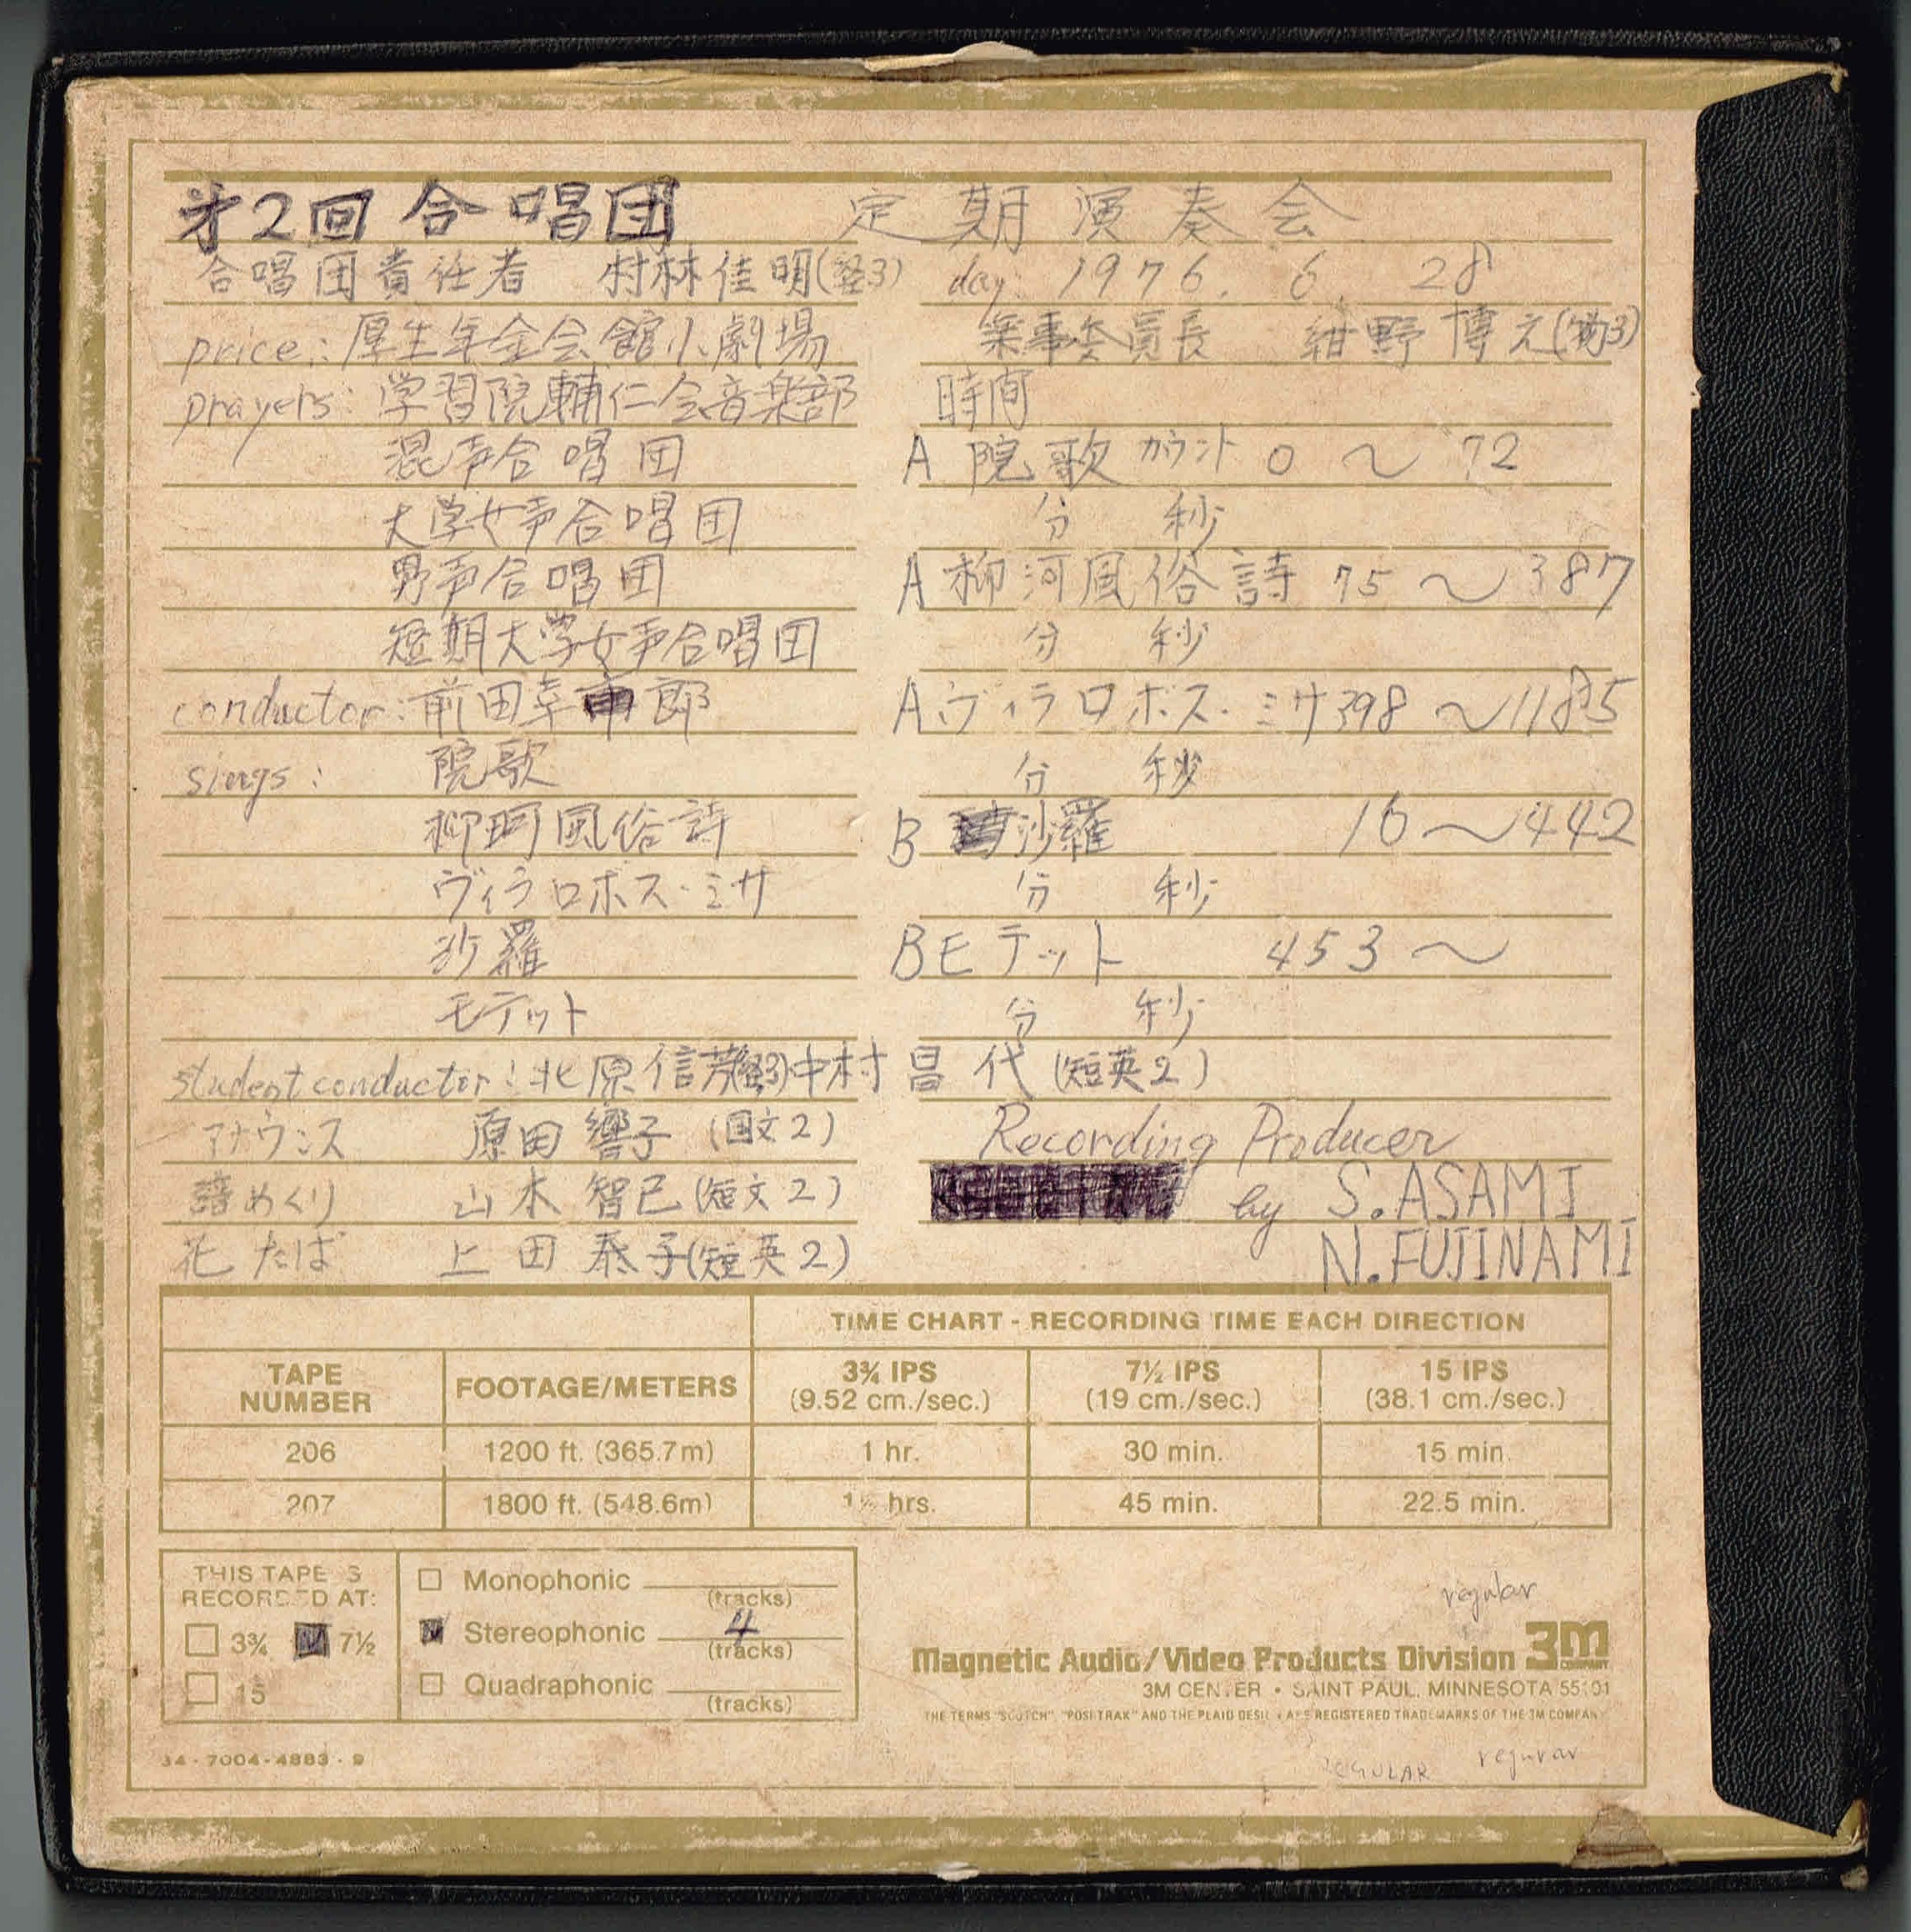 第2回 合唱団 定期演奏会
合唱団責任者 村林佳明(経3) day: 1976. 6. 28
price: 厚生年金会館小劇場 楽事委員長 紺野博之(物3)
prayers: 学習院輔仁会音楽部 時間
混声合唱団 A 院歌 カウント 0 〜 72
大学女声合唱団 分 秒
男声合唱団 A 柳河風俗詩 75 〜 387
短期大学女声合唱団 分 秒
conductor: 前田幸郎 A ヴィラロボス・ミサ 398 〜 1185
sings: 院歌 分 秒
柳河風俗詩 B 沙羅 16 〜 442
ヴィラロボス・ミサ 分 秒
沙羅 B モテット 453 〜
モテット 分 秒
student conductor: 北原信 (経3) 中村昌代 (短英2)
アナウンス 原田響子 (国文2) Recording Producer
譜めくり 山本智己 (短文2) by S. ASAMI
花たば 上田泰子 (短英2) N. FUJINAMI
TIME CHART - RECORDING TIME EACH DIRECTION
TAPE NUMBER FOOTAGE/METERS 3¾ IPS (9.52 cm./sec.) 7½ IPS (19 cm./sec.) 15 IPS (38.1 cm./sec.)
206 1200 ft. (365.7m) 1 hr. 30 min. 15 min.
207 1800 ft. (548.6m) 1½ hrs. 45 min. 22.5 min.
THIS TAPE IS
RECORDED AT:
3¾ 7½
15
Monophonic (tracks)
Stereophonic 4 (tracks)
Quadraphonic (tracks)
regular
Magnetic Audio/Video Products Division 3M COMPANY
3M CENTER • SAINT PAUL, MINNESOTA 55101
THE TERMS "SCOTCH", "POSI TRAK" AND THE PLAID DESIGN ARE REGISTERED TRADEMARKS OF THE 3M COMPANY
34-7004-4883-9
REGULAR regurar